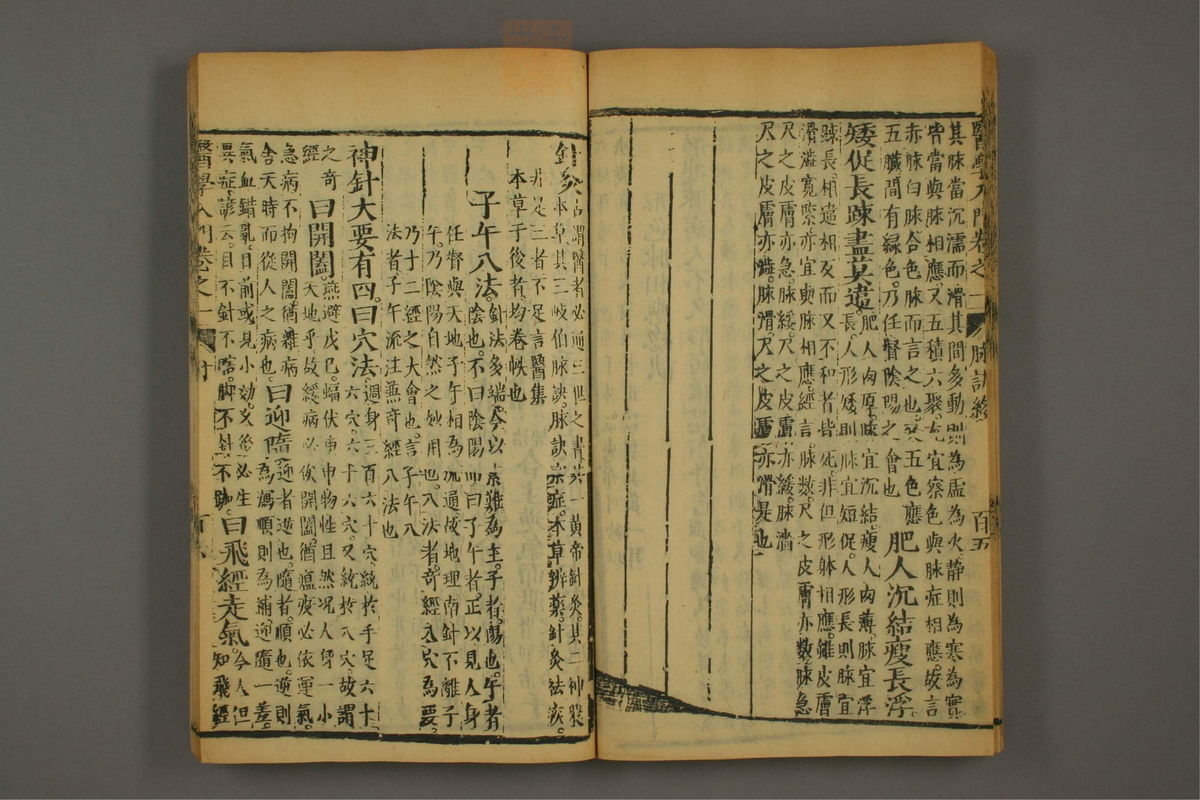 醫學入門卷之一 脉訣終 百五
其脉當沉濡而滑其間多動則為虛為火靜則為寒為實
皆當與脉相應又五積六聚尤宜察色與脉症相應故言
赤脉白脉合色脉而言之也然五色應
五臟間有綠色乃任督陰陽之會也
肥人沉結瘦長浮
矮促長疎盡莫違
肥人肉厚脉宜沉結瘦人肉薄脉宜浮
長人形矮則脉宜短促人形長則脉宜
疎長相違相反而又不和者皆死非但形躰相應雖皮膚
滑澁寬緊亦宜與脉相應經言脉數尺之皮膚亦數脉急
尺之皮膚亦急脉緩尺之皮膚亦緩脉澁
尺之皮膚亦澁脉滑尺之皮膚亦滑是也
針灸
古謂醫者必通三世之書其一黃帝針灸其二神農
本草其三岐伯脉訣脉訣察症本草辨藥針灸祛疾
非是三者不足言醫集
本草于後者均卷帙也
子午八法
針法多端今以素難為主子者陽也午者
陰也不曰陰陽而曰子午者正以見人身
任督與天地子午相為流通故地理南針不離子
午乃陰陽自然之妙用也八法者奇經八穴為要
乃十二經之大會也言子午八
法者子午流注兼奇經八法也
神針大要有四曰穴法
週身三百六十穴統於手足六十
六穴六十六穴又統於八穴故謂
之奇
經
曰開闔
燕避戊巳蝠伏庚申物性且然况人身一小
天地乎故緩病必俟開闔猶瘟疫必依運氣
急病不拘開闔猶雜病
舍天時而從人之病也
曰迎隨
迎者逆也隨者順也逆則
為瀉順則為補迎隨一差
氣血錯亂目前或見小効久後必生
異症諺云目不針不瞎脚不針不跛
曰飛經走氣
今人但
知飛經
醫學入門卷之一 針 百六